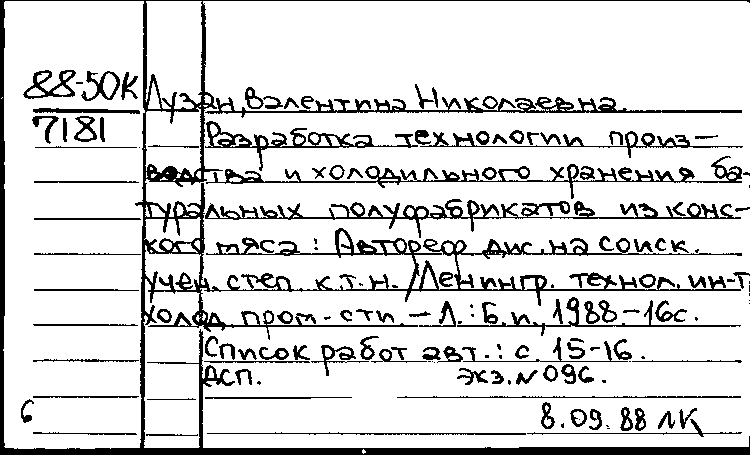 88-50К Лузан, Валентина Николаевна.
7181 Разработка технологии произ-
водства и холодильного хранения ба-
туральных полуфабрикатов из конс-
кого мяса : Автореф дис. на соиск.
учен. степ. к.т.н. /Ленингр. технол. ин-т
холод. пром-сти. - Л.: Б.и., 1988. - 16с.
Список работ авт.: с. 15-16.
ДСП. экз. N 096.
6 8.09.88 ЛК